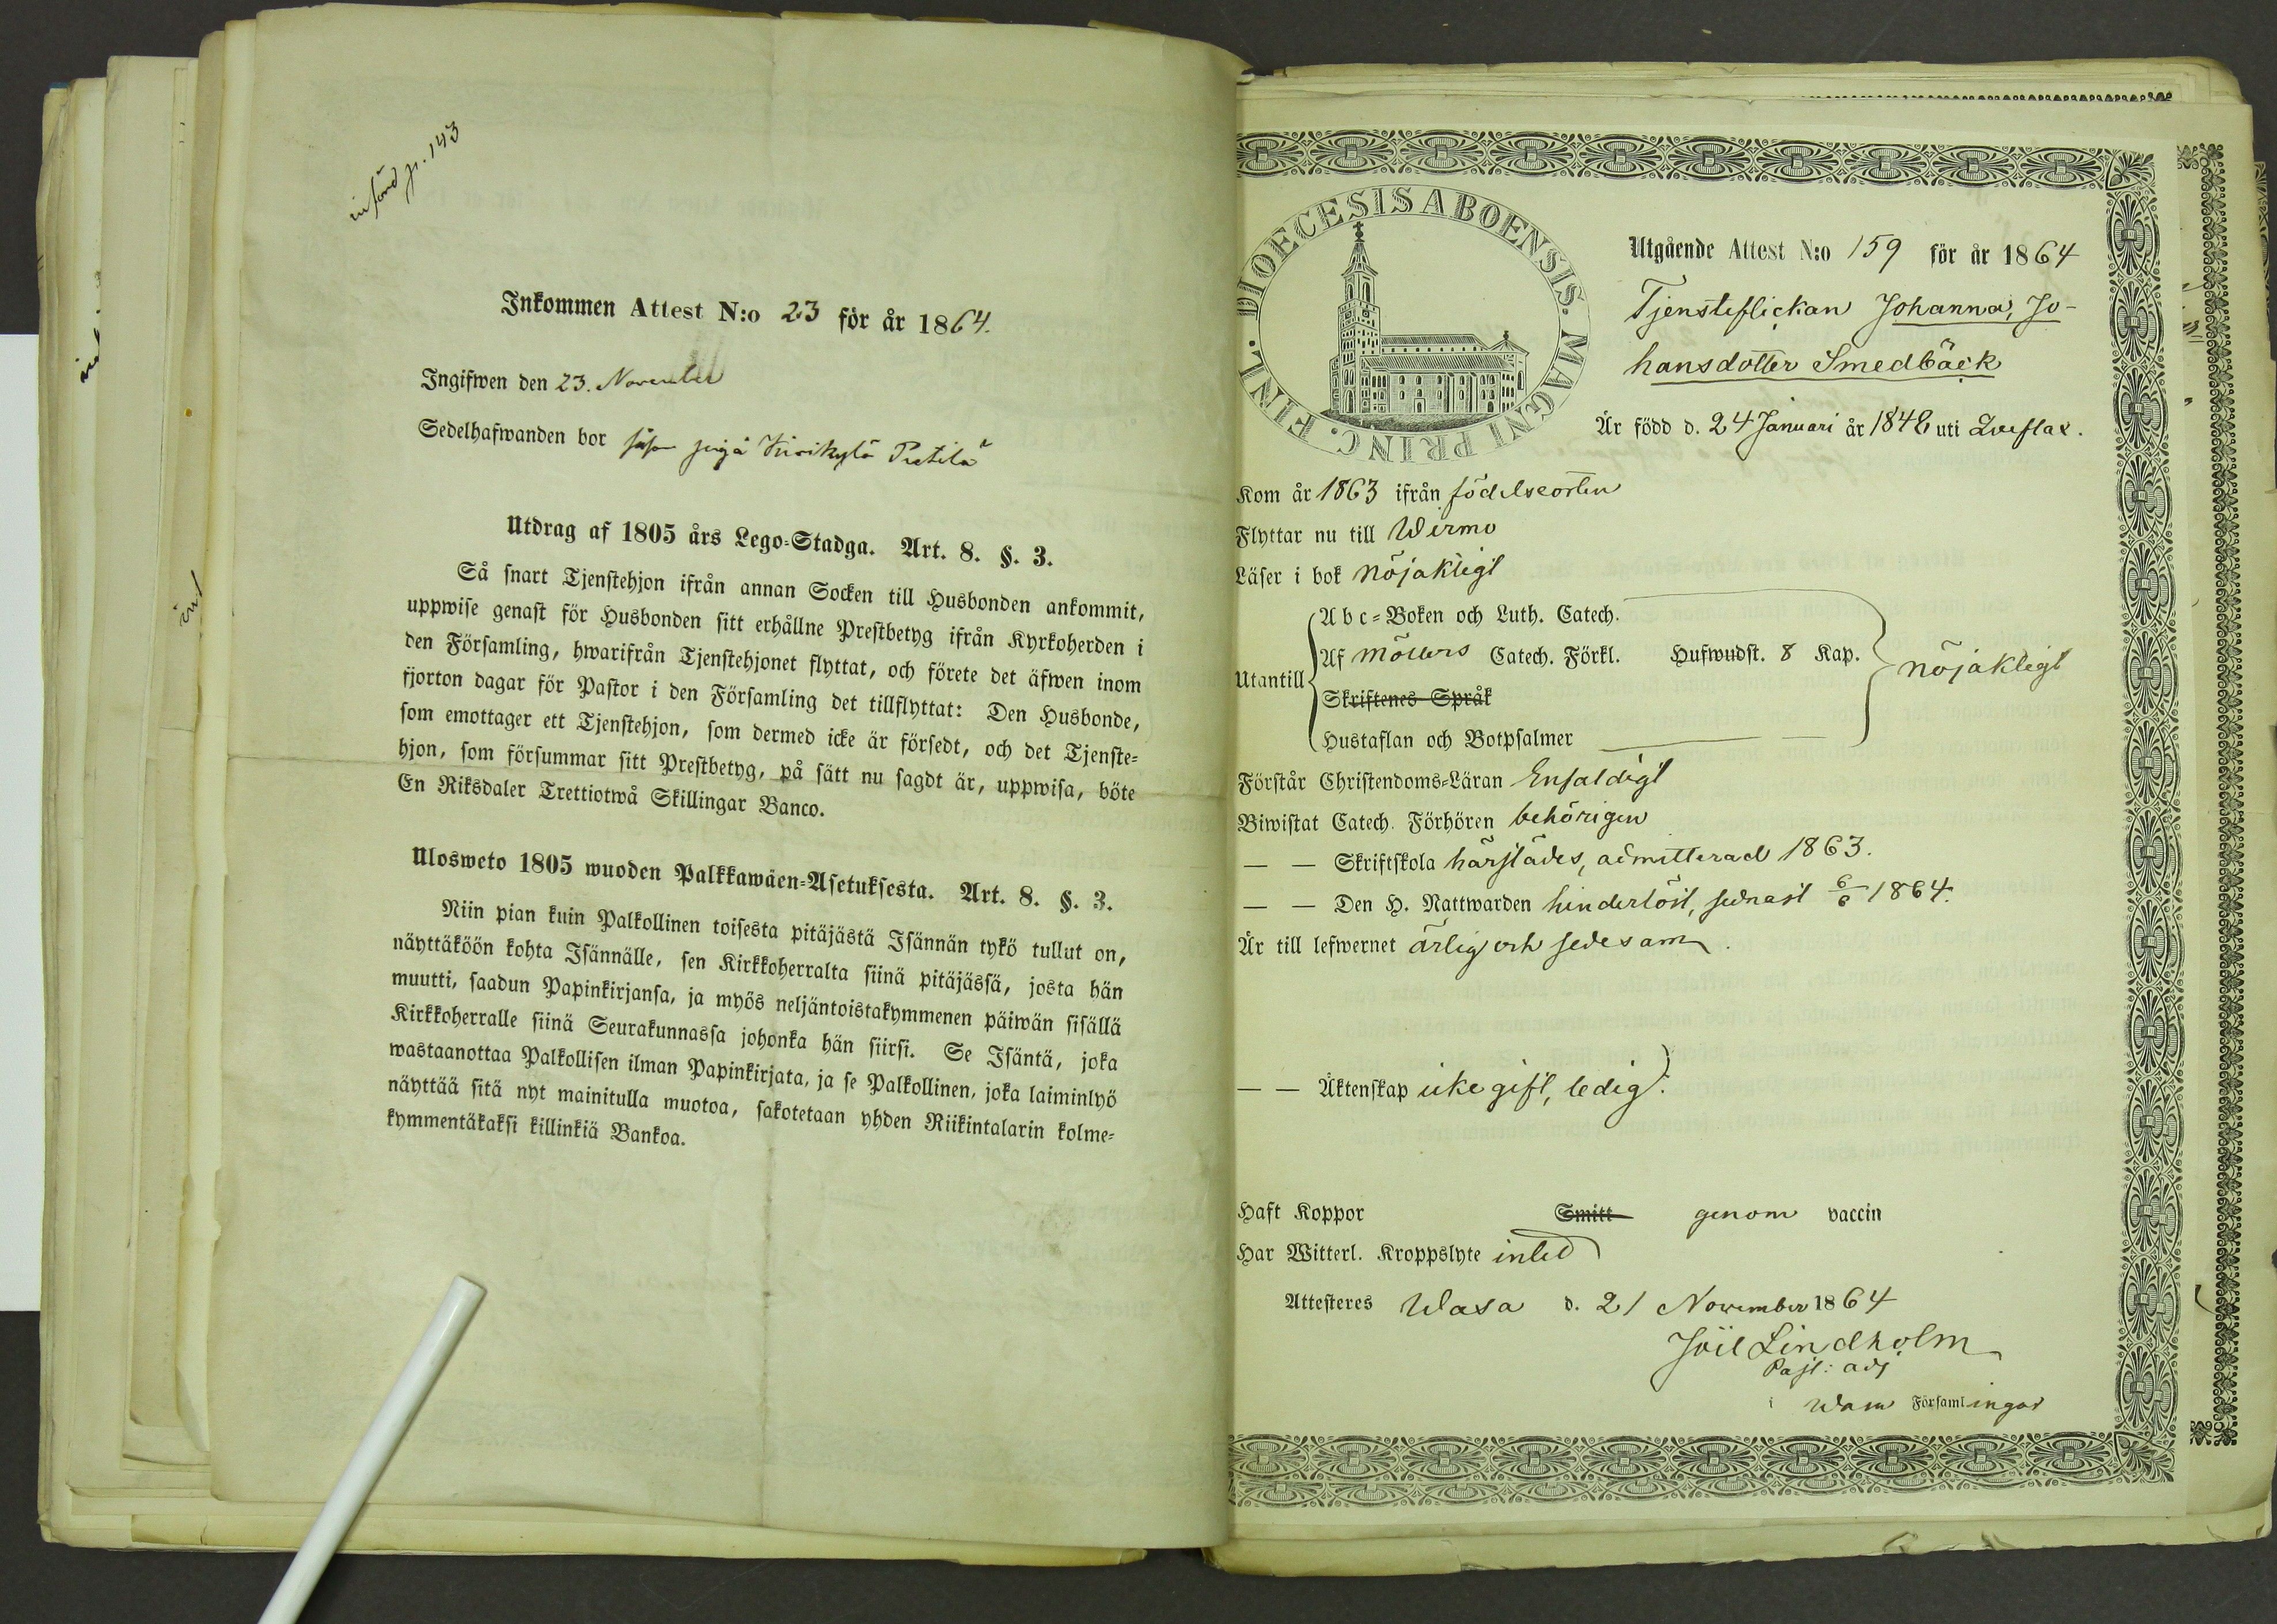 införd p. 143
Inkommen Attest N:o 23 för år 1864.
Ingifwen den 23. November
Sedelhafwanden bor piga
Utdrag af 1805 års Lego-Stadga. Art. 8. §. 3.
Så snart Tjenstehjon ifrån annan Socken till Husbonden ankommit,
uppwise genast för Husbonden sitt erhållne Prestbetyg ifrån Kyrkoherden i
den Församling, hwarifrån Tjenstehjonet flyttat, och förete det äfwen inom
fjorton dagar för Pastor i den Församling det tillflyttat: Den Husbonde,
som emottager ett Tjenstehjon, som dermed icke är försedt, och det Tjenste-
hjon, som försummar sitt Prestbetyg, på sätt nu sagdt är, uppwisa, böte
En Riksdaler Trettiotwå Skillingar Banco.
Ulosweto 1805 wuoden Palkkawäen-Asetuksesta. Art. 8. §. 3.
Niin pian kuin Palkollinen toisesta pitäjästä Isännän tykö tullut on,
näyttäköön kohta Isännälle, sen Kirkkoherralta siinä pitäjässä, josta hän
muutti, saadun Papinkirjansa, ja myös neljäntoistakymmenen päiwän sisällä
Kirkkoherralle siinä Seurakunnassa johonka hän siirsi. Se Isäntä, joka
wastaanottaa Palkollisen ilman Papinkirjata, ja se Palkollinen, joka laiminlyö
näyttää sitä nyt mainitulla muotoa, sakotetaan yhden Riikintalarin kolme-
kymmentäkaksi killinkiä Bankoa.
DIOECESIS ABOENSIS. MAGNI PRINC. FINL.
Utgående Attest N:o 159 för år 1864
Tjensteflickan Johanna, Jo-
hansdotter Smedbäck
Är född d. 24 Januari år 1848 uti Qveflax.
Kom år 1863 ifrån födelseorten
Flyttar nu till Wirmo
Läser i bok nöjaktigt
Abc-Boken och Luth. Catech.
Utantill Af möllers Catech. Förkl. Hufwudst. 8 Kap. nöjaktigt
Skriftenes Språk
Hustaflan och Botpsalmer
Förstår Christendoms-Läran Enfaldigt
Biwistat Catech. Förhören behörigen
— — Skriftskola härstädes, admitterad 1863.
— — Den H. Nattwarden hinderlöst, sednast 6/6 1864.
Är till lefwernet ärlig och sedesam.
— — Äktenskap icke gift, ledig.
Haft Koppor Smitt genom vaccin
Har Witterl. Kroppslyte intet
Attesteres Wasa d. 21 November 1864
Joel Lindholm
Past: adj
i Wasa Församlingar